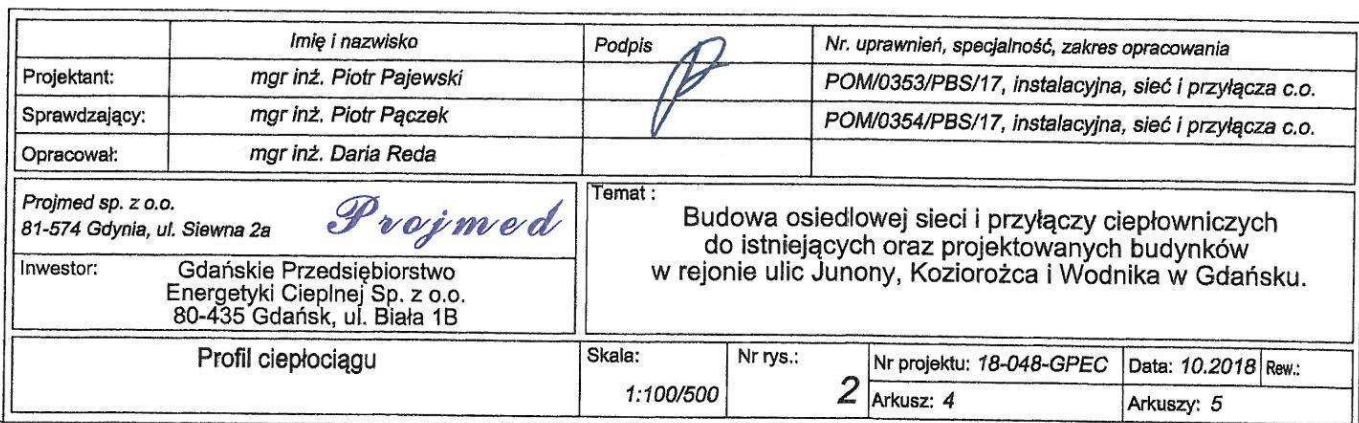 Imię i nazwisko Podpis Nr. uprawnień, specjalność, zakres opracowania
Projektant: mgr inż. Piotr Pajewski POM/0353/PBS/17, instalacyjna, sieć i przyłącza c.o.
Sprawdzający: mgr inż. Piotr Pączek POM/0354/PBS/17, instalacyjna, sieć i przyłącza c.o.
Opracował: mgr inż. Daria Reda
Projmed sp. z o.o.
81-574 Gdynia, ul. Siewna 2a
Projmed
Inwestor: Gdańskie Przedsiębiorstwo
Energetyki Cieplnej Sp. z o.o.
80-435 Gdańsk, ul. Biała 1B
Temat :
Budowa osiedlowej sieci i przyłączy ciepłowniczych
do istniejących oraz projektowanych budynków
w rejonie ulic Junony, Koziorożca i Wodnika w Gdańsku.
Profil ciepłociągu
Skala:
1:100/500
Nr rys.:
2
Nr projektu: 18-048-GPEC Data: 10.2018 Rew.:
Arkusz: 4 Arkuszy: 5